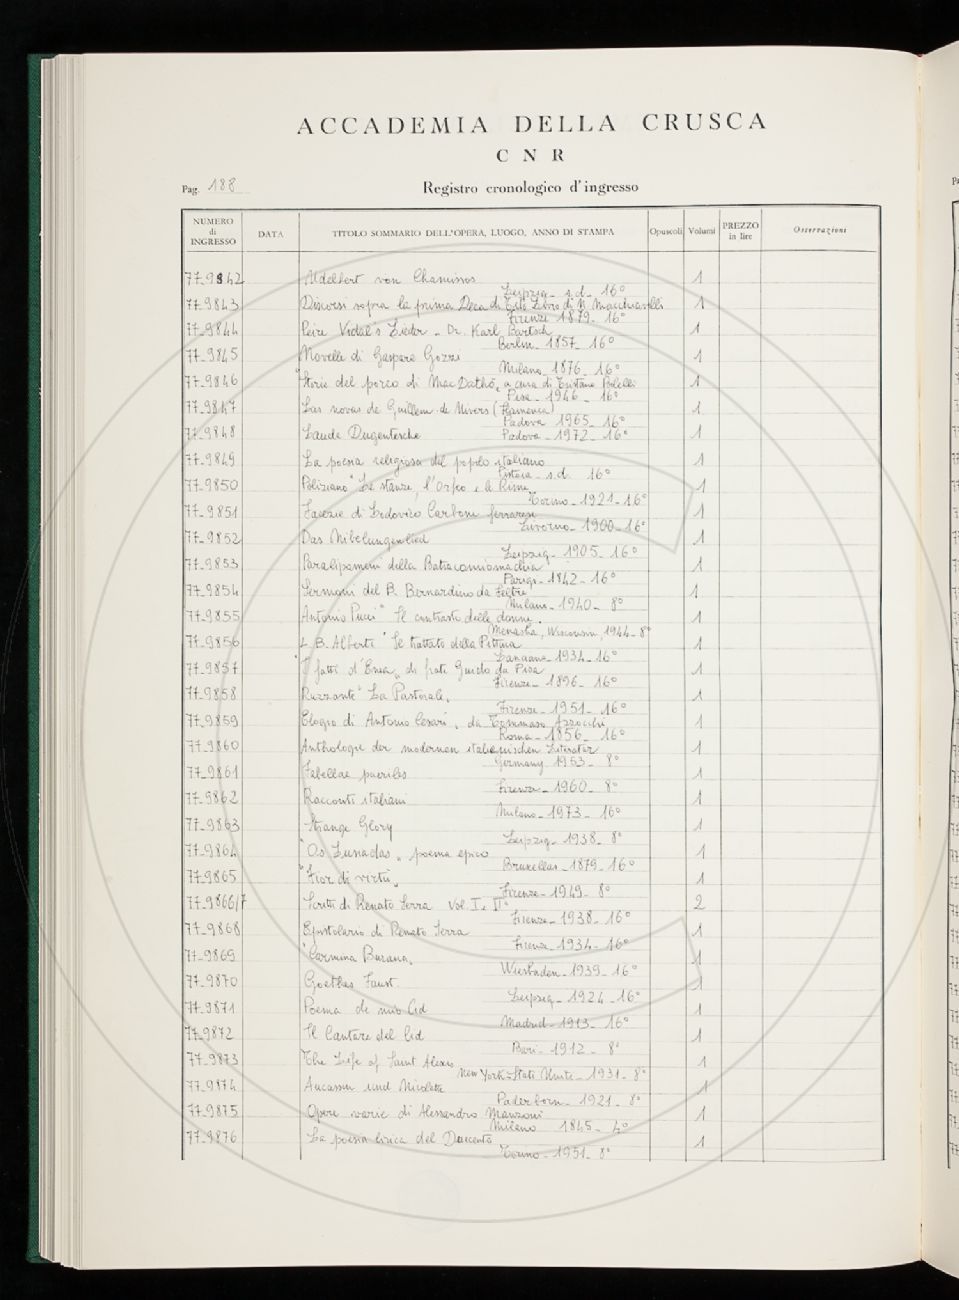 ACCADEMIA DELLA CRUSCA
C N R
Pag. 188
Registro cronologico d'ingresso
NUMERO di INGRESSO DATA TITOLO SOMMARIO DELL'OPERA, LUOGO, ANNO DI STAMPA Opuscoli Volumi PREZZO in lire Osservazioni
77-9842 Adelbert von Chamissos 1
Leipzig - s.d. - 16°
77-9843 Discorsi sopra la prima Deca di Tito Livio di N. Macchiavelli 1
Firenze 1879 - 16°
77-9844 Peire Vidal's Lieder - Dr. Karl Bartsch 1
Berlin - 1857 - 16°
77-9845 Novelle di Gaspare Gozzi 1
Milano - 1876 - 16°
77-9846 "Storie del porco di Mac Dathó" a cura di Tristano Bolelli 1
Pisa - 1946 - 16°
77-9847 Las novas de Guillem de Nivers (Flamenca) 1
Padova 1965 - 16°
77-9848 Laude Dugentesche 1
Padova - 1972 - 16°
77-9849 La poesia religiosa del popolo italiano 1
Pistoia - s.d. 16°
77-9850 Poliziano "Le stanze, l'Orfeo e le Rime" 1
Torino - 1921 - 16°
77-9851 Facezie di Lodovico Carboni ferrarese 1
Livorno - 1900 - 16°
77-9852 Das Nibelungenlied 1
Leipzig - 1905 - 16°
77-9853 Paralipomeni della Batracomiomachia 1
Parigi - 1842 - 16°
77-9854 Sermoni del B. Bernardino da Feltre 1
Milano - 1940 - 8°
77-9855 Antonio Pucci "Il contrasto delle donne" 1
Menasha, Wisconsin, 1944 - 8°
77-9856 L. B. Alberti "Il trattato della Pittura 1
Lanciano - 1934 - 16°
77-9857 "I fatti d'Enea" di frate Guido da Pisa 1
Firenze - 1896 - 16°
77-9858 Ruzzante "La Pastorale" 1
Firenze - 1951 - 16°
77-9859 Elogio di Antonio Cesari, da Tommaso Azzocchi 1
Roma - 1856 - 16°
77-9860 Anthologie der modernen italienischen Literatur 1
Germany 1953 - 8°
77-9861 Fabellae pueriles 1
Firenze - 1960 - 8°
77-9862 Racconti italiani 1
Milano - 1973 - 16°
77-9863 Strange Glory 1
Leipzig - 1938 - 8°
77-9864 "Os Lusiadas" poema epico 1
Bruxellas - 1879 - 16°
77-9865 "Fior di virtù" 1
Firenze - 1949 - 8°
77-9866/7 Scritti di Renato Serra vol. I e II° 2
Firenze - 1938 - 16°
77-9868 Epistolario di Renato Serra 1
Firenze 1934 - 16°
77-9869 "Carmina Burana" 1
Wiesbaden - 1939 - 16°
77-9870 Goethes Faust 1
Leipzig - 1924 - 16°
77-9871 Poema de mio Cid 1
Madrid - 1913 - 16°
77-9872 Il Cantare del Cid 1
Bari - 1912 - 8°
77-9873 The Life of Saint Alexis 1
New York - Stati Uniti - 1931 - 8°
77-9874 Aucassin und Nicolete 1
Paderborn - 1921 - 8°
77-9875 Opere varie di Alessandro Manzoni 1
Milano 1845 - 4°
77-9876 La poesia lirica del Duecento 1
Torino - 1951 - 8°